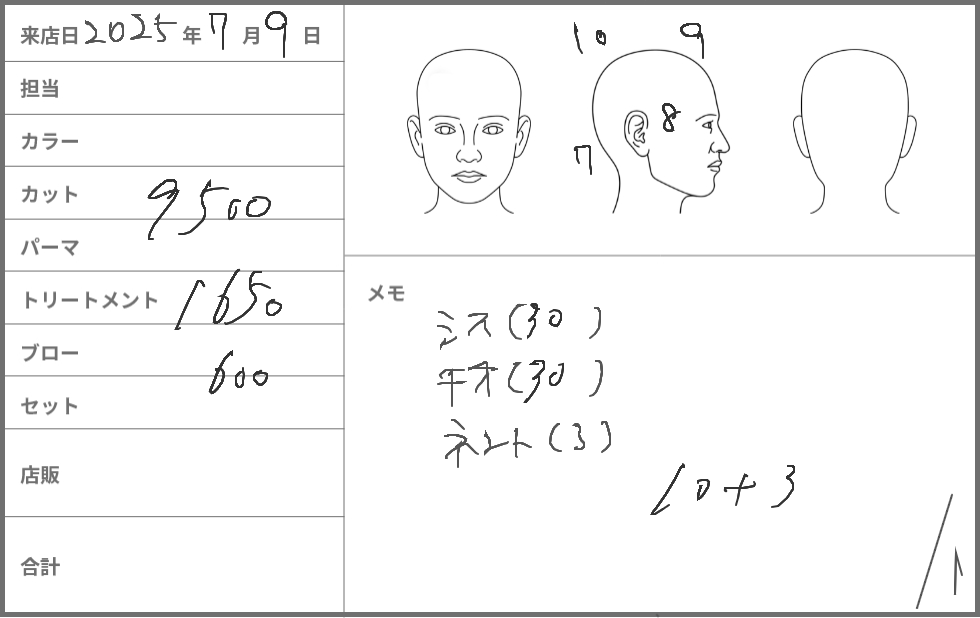 来店日 2025 年 7 月 9 日
担当
カラー
カット 9500
パーマ
トリートメント 1650
ブロー 600
セット
店販
合計
10 9
8
7
メモ
ミス(30)
(30)
ネント(3)
10+3
/1